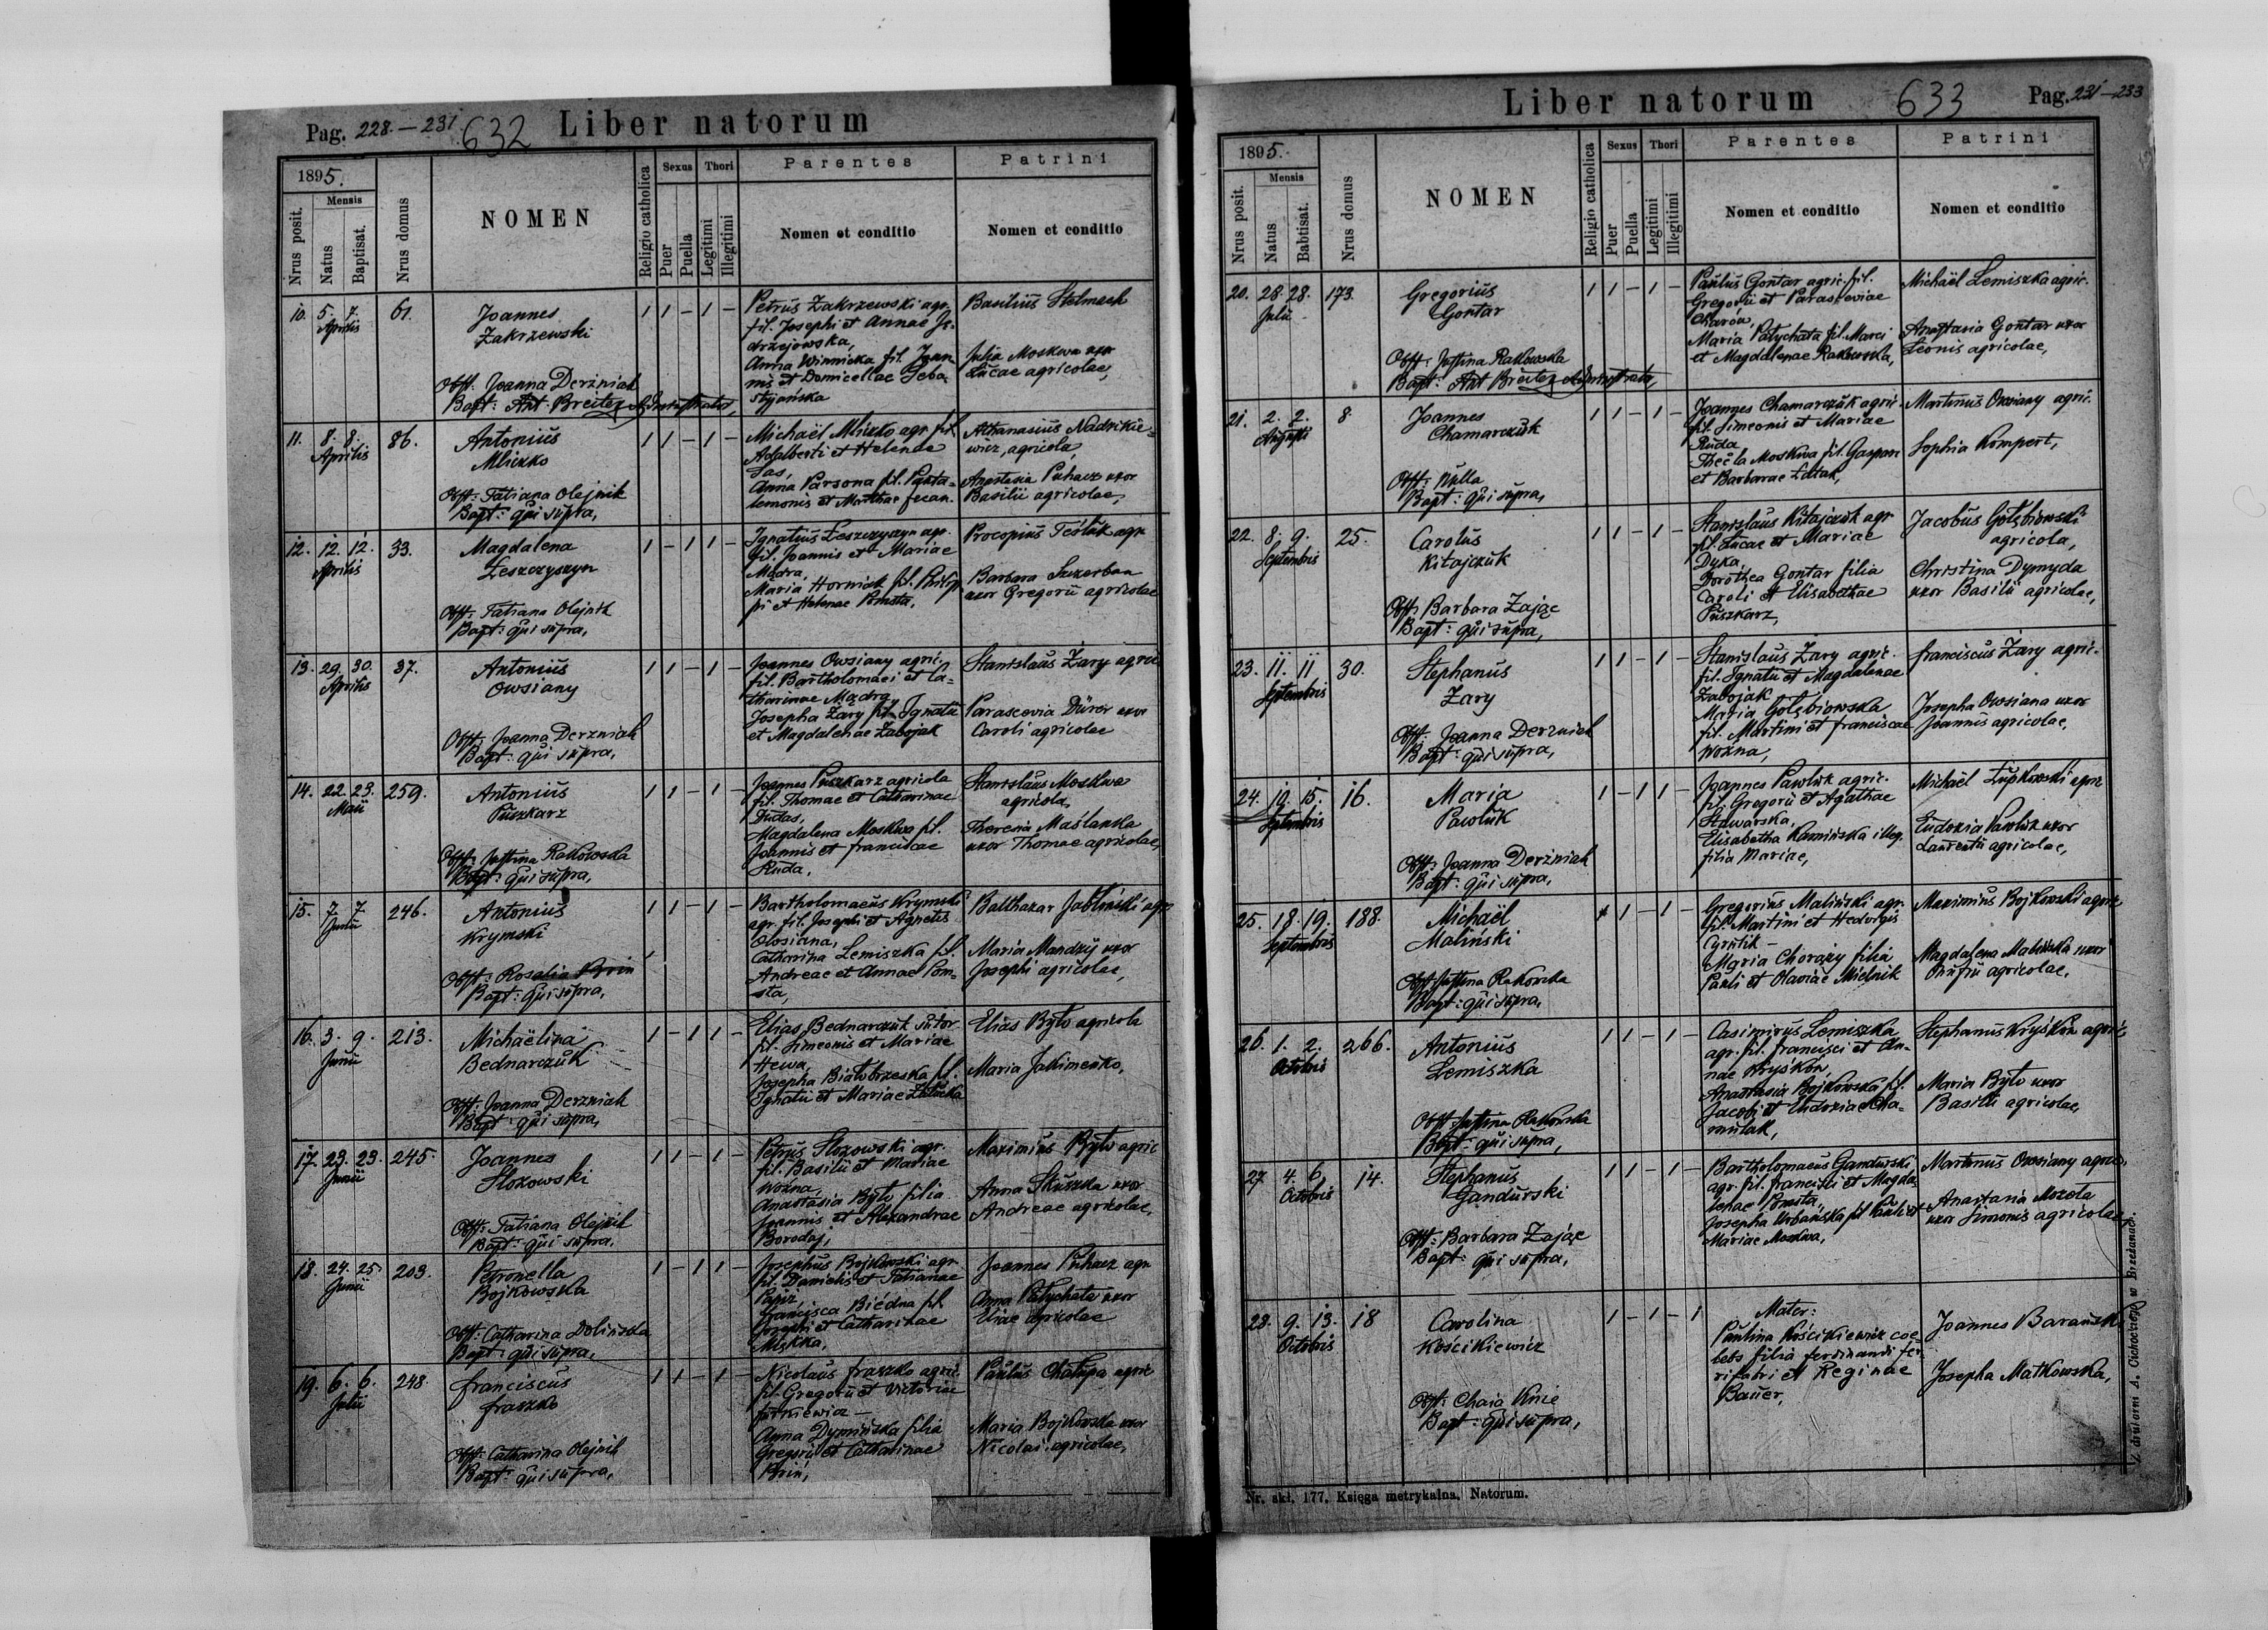 Pag. 228.—231.
632
Liber natorum
1895.
Nrus posit.
Mensis
Natus
Baptisat.
Nrus domus
NOMEN
Religio catholica
Sexus
Puer
Puella
Thori
Legitimi
Illegitimi
Parentes
Nomen et conditio
Patrini
Nomen et conditio
10. 5. 7. Aprilis 61.
Joannes
Zakrzewski
Obst: Joanna Derżniak
Bapt: Ant: Breitez Administrator,
1 1 – 1 –
Petrus Zakrzewski agr.
fil. Josephi et Annae Ję-
drzejowska,
Anna Winnicka fil. Joan-
nis et Domicellae Seba-
styjańska
Basilius Stelmach
Julia Moskwa uxor
Lucae agricolae,
11. 8. 8. Aprilis 86.
Antonius
Mliczko
Obst: Tatiana Olejnik
Bapt: qui supra,
1 1 – 1 –
Michaël Mliczko agr. fil.
Adalberti et Helenae
Sas,
Anna Parsona fil. Panta-
lemonis et Marthae
Athanasius Nadrikie-
wicz, agricola,
Anastasia Puhacz uxor
Basilii agricolae,
12. 12. 12. Aprilis 33.
Magdalena
Leszczyszyn
Obst: Tatiana Olejnik
Bapt: qui supra,
1 – 1 1 –
Ignatius Leszczyszyn agr.
fil. Joannis et Mariae
Mądra,
Maria Horniak fil. Philip-
pi et Helenae Pomsta,
Procopius Teśluk agr.
Barbara Szczerban
uxor Gregorii agricolae
13. 29. 30. Aprilis 37.
Antonius
Owsiany
Obst: Joanna Derżniak
Bapt: qui supra,
1 1 – 1 –
Joannes Owsiany agric.
fil. Bartholomaei et Ca-
tharinae Mądra,
Josepha Zary fil. Ignatii
et Magdalenae Zabojak
Stanislaus Zary agric
Parascevia Dürer uxor
Caroli agricolae
14. 22. 23. Maii 259.
Antonius
Puszkarz
Obst: Justina Rakowska
Bapt: qui supra,
1 1 – 1 –
Joannes Puszkarz agricola
fil. Thomae et Catharinae
Dudas,
Magdalena Moskwa fil.
Joannis et Franciscae
Ruda,
Stanislaus Moskwa
agricola,
Theresia Maślanka
uxor Thomae agricolae,
15. 7. 7. Junii 246.
Antonius
Krymski
Obst: Rosalia Bryn
Bapt: qui supra,
1 1 – 1 –
Bartholomaeus Krymski
agr. fil. Josephi et Agnetis
Owsiana,
Catharina Lemiszka fil.
Andreae et Annae Pom-
sta,
Balthazar Jabłoński agr
Maria Mandzij uxor
Josephi agricolae,
16. 3. 9. Junii 213.
Michaëlina
Bednarczuk
Obst: Joanna Derżniak
Bapt: qui supra,
1 – 1 1 –
Elias Bednarczuk sutor
fil. Simeonis et Mariae
Hewa,
Josepha Białobrzeska fil.
Ignatii et Mariae
Elias Było agricola
Maria Jakimenko,
17. 23. 23. Junii 245.
Joannes
Słozowski
Obst: Tatiana Olejnik
Bapt: qui supra.
1 1 – 1 –
Petrus Słozowski agr.
fil. Basilii et Mariae
Woźna,
Anastasia Było filia
Joannis et Alexandrae
Borodaj,
Maximius Było agric
Anna Skuzka uxor
Andreae agricolae,
18. 24. 25. Junii 203.
Petronella
Bojkowska
Obst: Catharina Dolińska
Bapt: qui supra,
1 – 1 1 –
Josephus Bojkowski agr.
fil. Danielis et Tatianae
Papiż,
Francisca Biédna fil.
Josephi et Catharinae
Miśkka,
Joannes Puhacz agr
Anna Patychata uxor
Eliae agricolae
19. 6. 6. Julii 248.
Franciscus
Fraszko
Obst: Catharina Olejnik
Bapt: qui supra,
1 1 – 1 –
Nicolaus Fraszko agric.
fil. Gregorii et Victoriae
Jurkiewicz –
Anna Dymińska filia
Gregorii et Catharinae
Bryn,
Paulus Chałupa agric
Maria Bojkowska uxor
Nicolai agricolae,
Liber natorum
633
Pag. 231—233
1895.
Nrus posit.
Mensis
Natus
Babtisat.
Nrus domus
NOMEN
Religio catholica
Sexus
Puer
Puella
Thori
Legitimi
Illegitimi
Parentes
Nomen et conditio
Patrini
Nomen et conditio
20. 28. 28. Julii 173.
Gregorius
Gontar
Obst: Justina Rakowska
Bapt: Ant Breitez Administrator,
1 1 – 1 –
Paulus Gontar agric. fil.
Gregorii et Parasceviae
Charów,
Maria Patychata fil. Marci
et Magdalenae Rakowska,
Michaël Lemiszka agric.
Anastasia Gontar uxor
Leonis agricolae,
21. 2. 2. Augusti 8
Joannes
Chamarczuk
Obst: Nulla
Bapt: qui supra,
1 1 – 1 –
Joannes Chamarczuk agric.
fil. Simeonis et Mariae
Ruda
Thecla Moskwa fil. Gaspari
et Barbarae
Martinus Owsiany agric.
Sophia Kompert,
22. 8. 9. Septembris 25.
Carolus
Kitajczuk
Obst: Barbara Zając
Bapt: qui supra,
1 1 – 1 –
Stanislaus Kitajczuk agr
fil. Lucae et Mariae
Dyka,
Dorothea Gontar filia
Caroli et Elisabethae
Puszkarz,
Jacobus Gołębiowski
agricola,
Christina Dymyda
uxor Basilii agricolae,
23. 11. 11 Septembris 30.
Stephanus
Zary
Obst: Joanna Derżniak
Bapt: qui supra,
1 1 – 1 –
Stanislaus Zary agric.
fil. Ignatii et Magdalenae
Zabojak
Maria Gołębiowska
fil. Martini et Franciscae
Woźna,
Franciscus Zary agric.
Josepha Owsiana uxor
Joannis agricolae,
24. 12. 15. Septembris 16.
Maria
Pawluk
Obst: Joanna Derżniak
Bapt: qui supra,
1 – 1 1 –
Joannes Pawluk agric.
fil. Gregorii et Agathae
Stawarska,
Elisabetha Kamińska illeg.
filia Mariae,
Michaël Łupkowski agric
Eudoxia Pawluk uxor
Laurentii agricolae,
25. 18. 19. Septembris 188.
Michaël
Maliński
Obst: Justina Rakowska
Bapt: qui supra,
1 1 – 1 –
Gregorius Maliński agr.
fil. Martini et Hedvigis
Cyrulik –
Maria Chorąży filia
Pauli et Olaviae Mielnik
Maximius Bojkowski agric
Magdalena Malińska uxor
Onufrii agricolae,
26. 1. 2. Octobris 266.
Antonius
Lemiszka
Obst: Justina Rakowska
Bapt: qui supra,
1 1 – 1 –
Casimirus Lemiszka
agr. fil. Francisci et An-
nae Hryśków,
Anastasia Bojkowska fil.
Jacobi et Eudoxiae Cha-
mulak,
Stephanus Hryśków agric,
Maria Było uxor
Basilii agricolae,
27. 4. 6. Octobris 14.
Stephanus
Gandurski
Obst: Barbara Zając
Bapt: qui supra,
1 1 – 1 –
Bartholomaeus Gandurski
agr. fil. Francisci et Magda-
lenae Pomsta,
Josepha Urbańska fil Pauli et
Mariae Moskwa,
Martinus Owsiany agric,
Anastasia Mozola
uxor Simonis agricolae,
28. 9. 13. Octobris 18
Carolina
Kościkiewicz
Obst: Chaia Knie
Bapt: qui supra,
1 – 1 – 1
Mater:
Paulina Kościkiewicz coe-
lebs filia Ferdinandi fer-
rifabri et Reginae
Bauer,
Joannes Barański
Josepha Matkowska,
Nr. skł. 177. Księga metrykalna. Natorum.
Z drukarni A. Cichockiej w Brzeżanach.